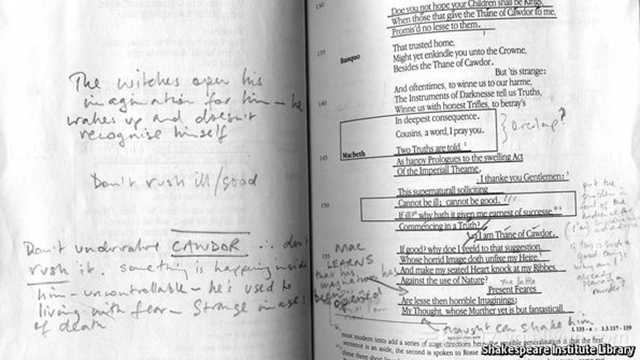 The witches open his
imagination for him - he
wakes up and doesn't
recognise himself
Don't rush ill/good
Don't undervalue CAWDOR ∴ don't
rush it. something is happening inside
him - uncontrollable - he's used to
living with fear - Strange images
of death
130
Doe you not hope your Children shall be Kings,
When those that gave the Thane of Cawdor to me,
Promis'd no lesse to them.
135
Banquo
That trusted home,
Might yet enkindle you unto the Crowne,
Besides the Thane of Cawdor.
But 'tis strange:
140
And oftentimes, to winne us to our harme,
The Instruments of Darknesse tell us Truths,
Winne us with honest Trifles, to betray's
In deepest consequence.
Cousins, a word, I pray you.
Macbeth
Two Truths are told,
145
As happy Prologues to the swelling Act
Of the Imperiall Theame.
I thanke you Gentlemen:
This supernaturall soliciting
150
Cannot be ill; cannot be good.
If ill? why hath it given me earnest of successe,
Commencing in a Truth?
I am Thane of Cawdor.
If good? why doe I yeeld to that suggestion,
155
Whose horrid Image doth unfixe my Heire,
And make my seated Heart knock at my Ribbes,
Against the use of Nature?
Present Feares
Are lesse then horrible Imaginings:
My Thought, whose Murther yet is but fantasticall,
MAC
LEARNS
that his
imagination has
been
opened
thought can shake him
1.3.117-139
most modern texts add a series of stage directions here, the possible generalisation is that the first
sentence is an aside, the second is spoken to Rosse
Shakespeare Institute Library